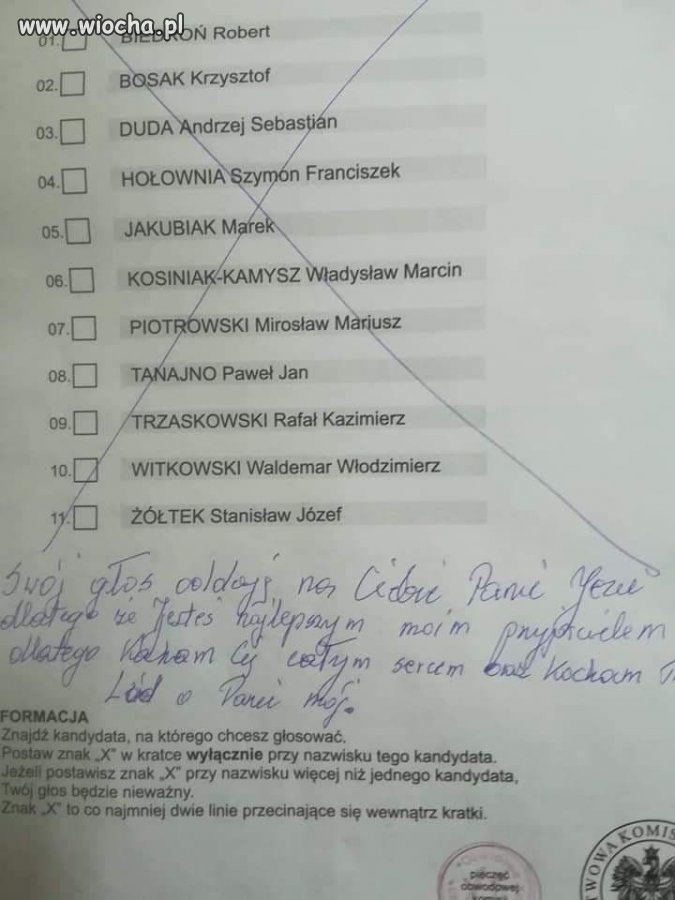 www.wiocha.pl
01. BIEDROŃ Robert
02. BOSAK Krzysztof
03. DUDA Andrzej Sebastian
04. HOŁOWNIA Szymon Franciszek
05. JAKUBIAK Marek
06. KOSINIAK-KAMYSZ Władysław Marcin
07. PIOTROWSKI Mirosław Mariusz
08. TANAJNO Paweł Jan
09. TRZASKOWSKI Rafał Kazimierz
10. WITKOWSKI Waldemar Włodzimierz
11. ŻÓŁTEK Stanisław Józef
Swój głos oddaję na Ciebie Panie Jezu
dlatego że jesteś najlepszym moim przyjacielem
dlatego Kocham Cię całym sercem oraz Kocham
Lud o Panie mój.
FORMACJA
Znajdź kandydata, na którego chcesz głosować.
Postaw znak „X" w kratce wyłącznie przy nazwisku tego kandydata.
Jeżeli postawisz znak „X" przy nazwisku więcej niż jednego kandydata,
Twój głos będzie nieważny.
Znak „X" to co najmniej dwie linie przecinające się wewnątrz kratki.
pieczęć
obwodowej
komisji
TWOWA KOMIS